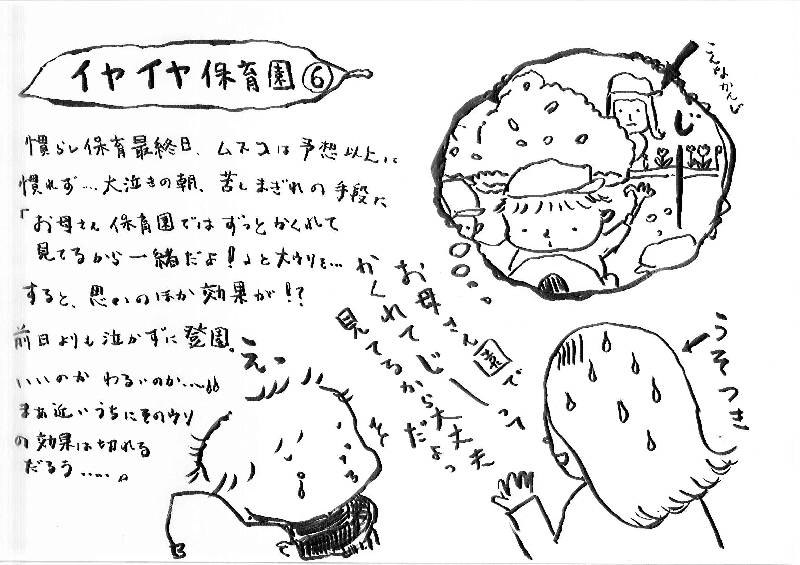 イヤイヤ保育園⑥
慣らし保育最終日、ムスコは予想以上に
慣れず…大泣きの朝、苦しまぎれの手段に
「お母さん保育園ではずっとかくれて
見てるから一緒だよ！」と大ウソを…
すると、思いのほか効果が!?
前日よりも泣かずに登園。
いいのか わるいのか……
まぁ近いうちにそのウソ
の効果は切れる
だろう……。
こんなかんじ
じーー
お母さん園で
かくれてじーって
見てるから大丈夫
だよっ
うそつき
えっ